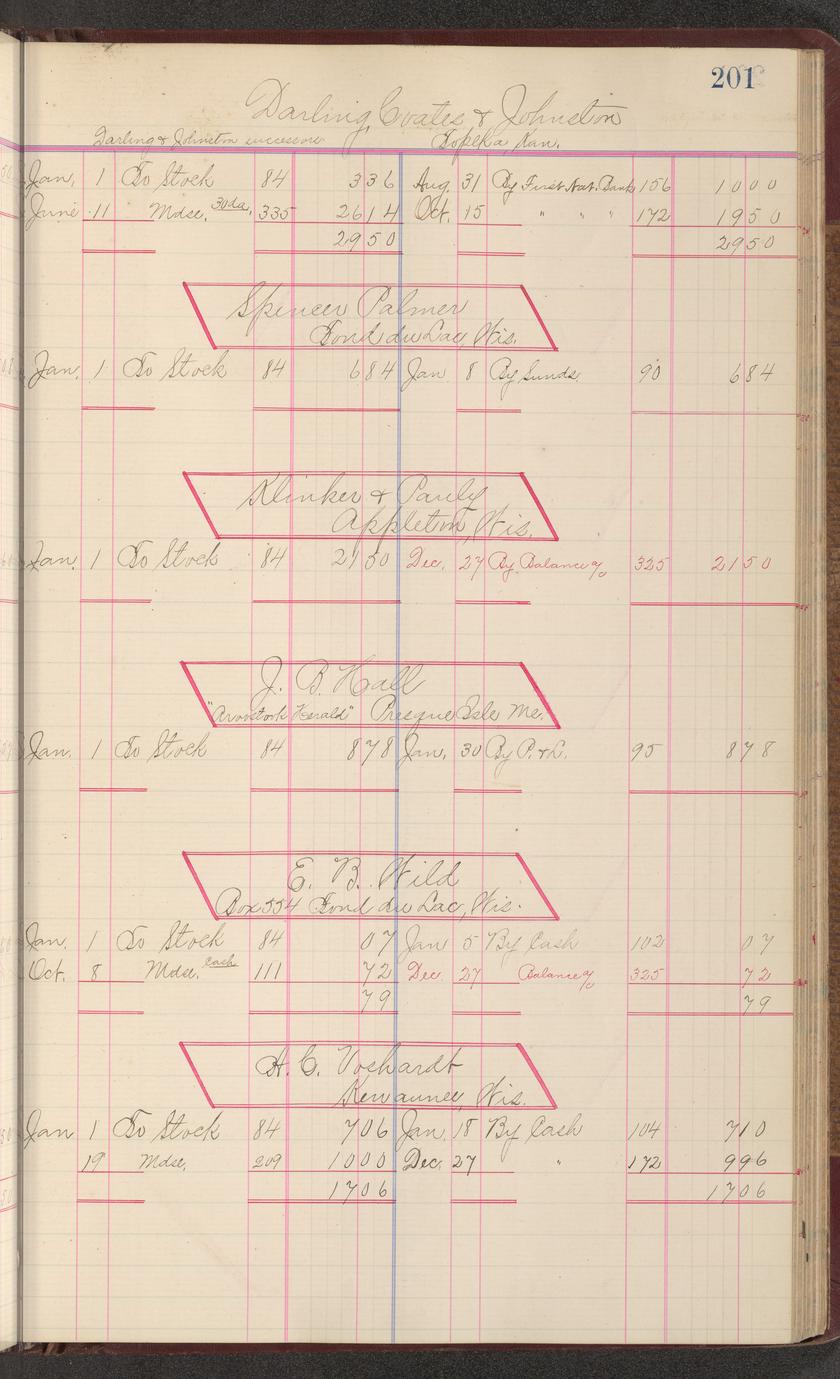 201
Darling, Coates & Johnston
Darling & Johnston successors Topeka Kan.
Jan. 1 To Stock 84 336 Aug. 31 By First Nat. Bank 156 1000
June 11 Mdse. 30 da. 335 2614 Oct. 15 " " " 172 1950
2950 2950
Spencer Palmer
Fond du Lac, Wis.
Jan. 1 To Stock 84 684 Jan 8 By Sunds. 90 684
Klinker & Pauly
Appleton, Wis.
Jan. 1 To Stock 84 2150 Dec. 27 By Balance % 325 2150
J. B. Hall
"Aroostook Herald" Presque Isle Me.
Jan. 1 To Stock 84 878 Jan. 30 By P. & L. 95 878
E. B. Wild
Box 554 Fond du Lac, Wis.
Jan. 1 To Stock 84 07 Jan 5 By Cash 102 07
Oct. 8 Mdse. Cash 111 72 Dec. 27 Balance % 325 72
79 79
H. C. Voshardt
Kewaunee, Wis.
Jan 1 To Stock 84 706 Jan. 18 By Cash 104 710
19 Mdse. 209 1000 Dec. 27 " 172 996
1706 1706